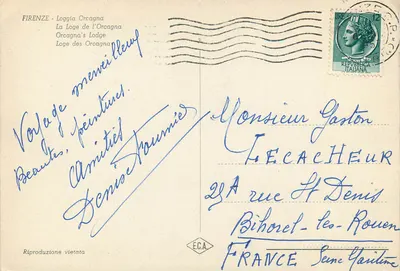 FIRENZE - Loggia Orcagna
La Loge de l'Orcagna
Orcagna's Lodge
Loge des Orcagna
Voyage merveilleux
Beautés, peintures.
Amitiés
Denise Fournier
Riproduzione vietata
E.C.A.
12
Monsieur Gaston
LECACHEUR
21A rue St Denis
Bihorel-les-Rouen
FRANCE Seine Maritime